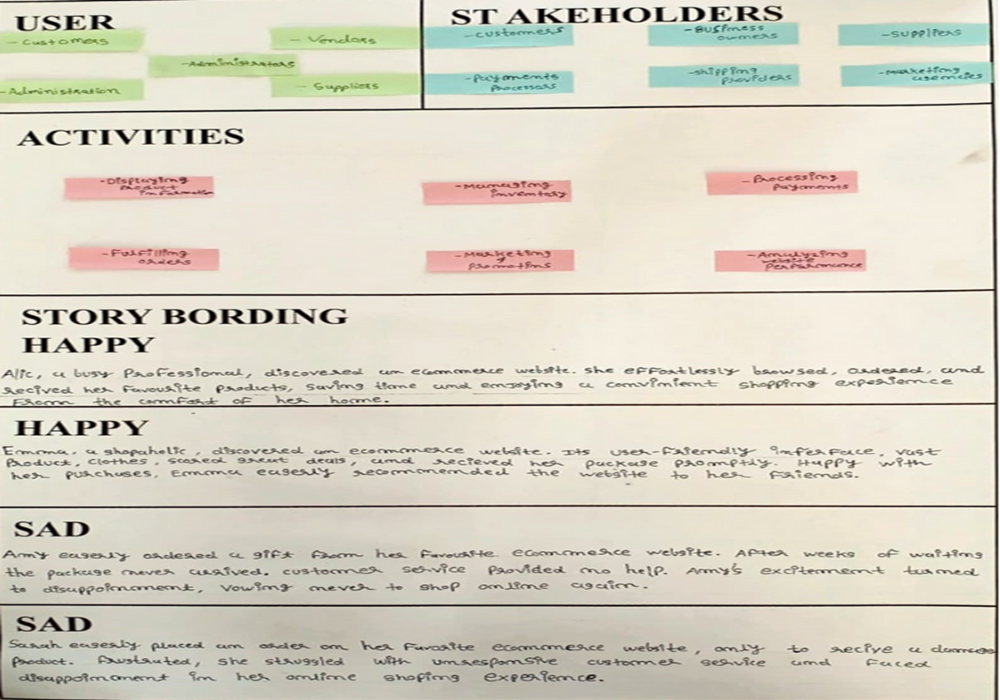 USER
- Customers
- Vendors
- Administrators
- Administration
- Suppliers
STAKEHOLDERS
- customers
- Business
owners
- suppliers
- Payments
processors
- shipping
providers
- marketing
agencies
ACTIVITIES
- Displaying
Product
information
- Managing
inventory
- Processing
Payments
- Fulfilling
orders
- Marketing
&
promotions
- Analyzing
website
performance
STORY BORDING
HAPPY
Alic, a busy Professional, discovered an ecommerce website. she effortlessly browsed, ordered, and
recived her favourite products, saving time and enjoying a convimient shopping experience
From the comfort of her home.
HAPPY
Emma, a shopaholic, discovered an ecommerce website. Its user-friendly inferface, vast
Product, clothes, scored great deals, and recieved her package promptly. Happy with
her purchases, Emma eagerly recommended the website to her friends.
SAD
Amy eagerly ordered a gift from her favourite ecommerce website. After weeks of waiting
the package never arrived. customer service provided no help. Amy's excitement turned
to disappoinment, vowing never to shop online again.
SAD
Sarah eagerly placed an order on her favorite ecommerce website, only to recive a damage
Product. frustrated, she struggled with unresponsive customer service and faced
disappoinment in her online shoping experience.